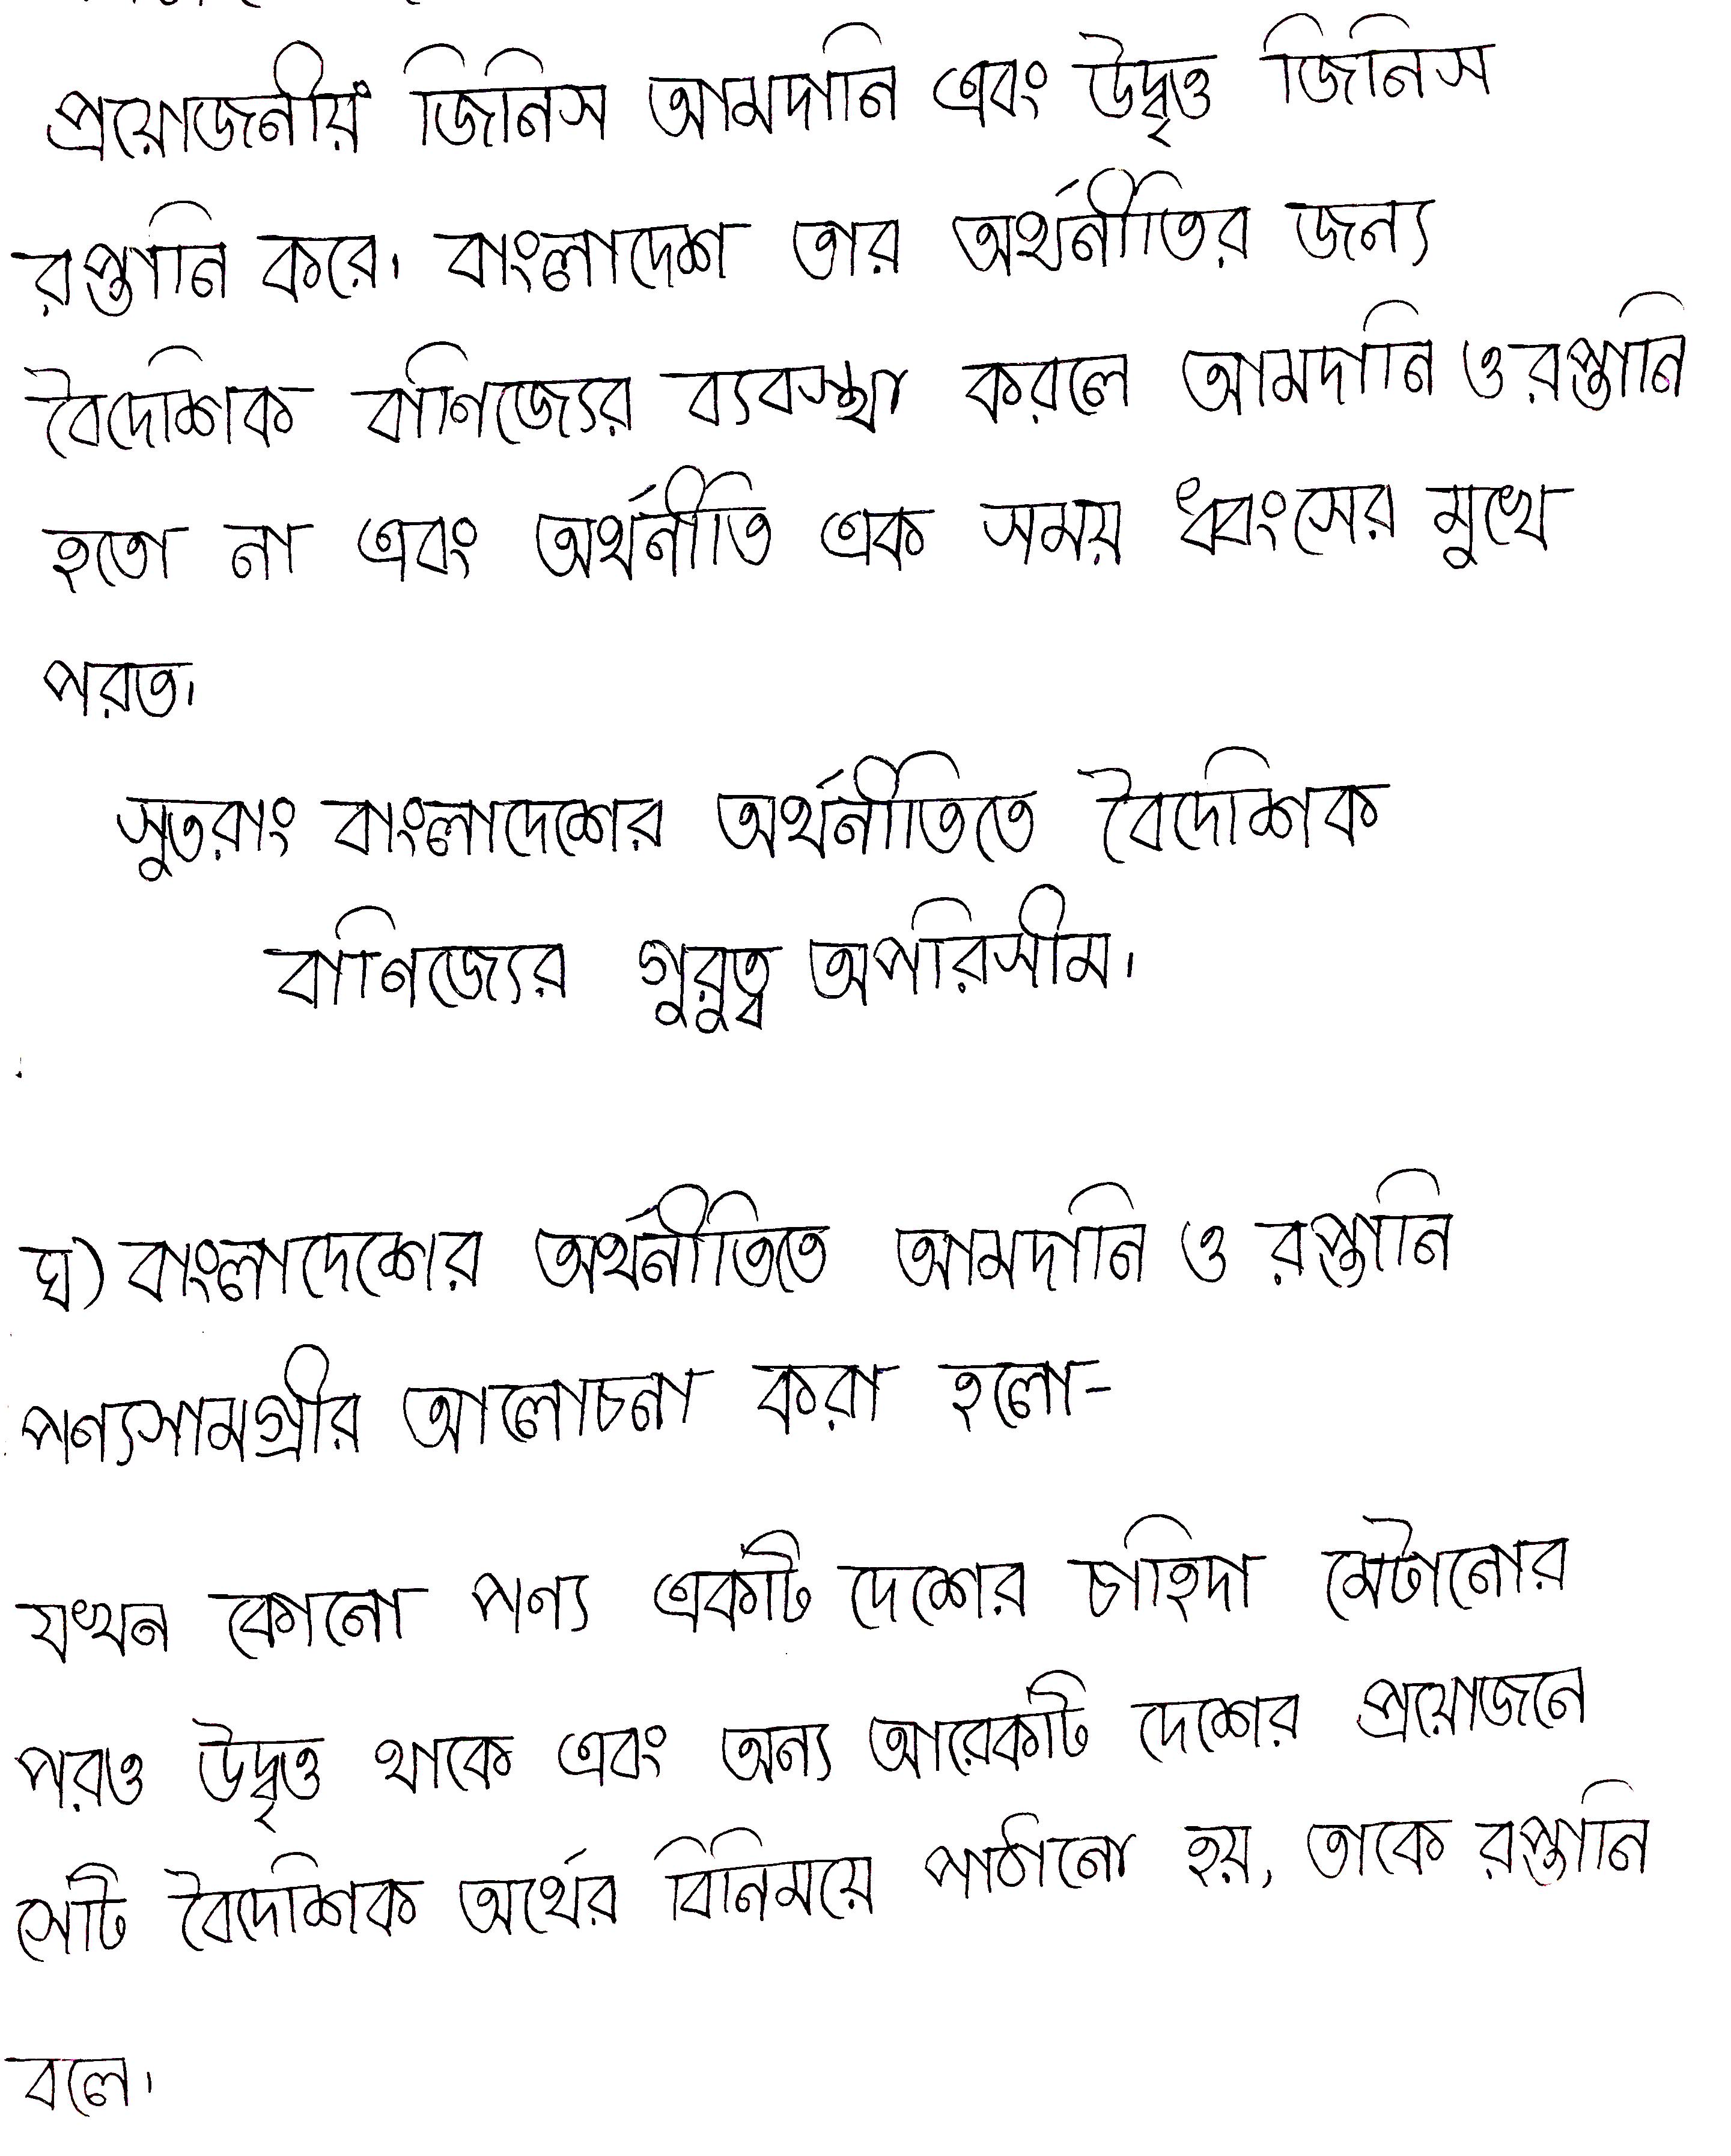 প্রয়োজনীয় জিনিস আমদানি এবং উদ্বৃত্ত জিনিস
রপ্তানি করে। বাংলাদেশ তার অর্থনীতির জন্য
বৈদেশিক বাণিজ্যের ব্যবস্থা করলে আমদানি ও রপ্তানি
হতো না এবং অর্থনীতি এক সময় ধ্বংসের মুখে
পরত।
সুতরাং বাংলাদেশের অর্থনীতিতে বৈদেশিক
বাণিজ্যের গুরুত্ব অপরিসীম।
ঘ) বাংলাদেশের অর্থনীতিতে আমদানি ও রপ্তানি
পণ্যসামগ্রীর আলোচনা করা হলো-
যখন কোনো পণ্য একটি দেশের চাহিদা মেটানোর
পরও উদ্বৃত্ত থাকে এবং অন্য আরেকটি দেশের প্রয়োজনে
সেটি বৈদেশিক অর্থের বিনিময়ে পাঠানো হয়, তাকে রপ্তানি
বলে।